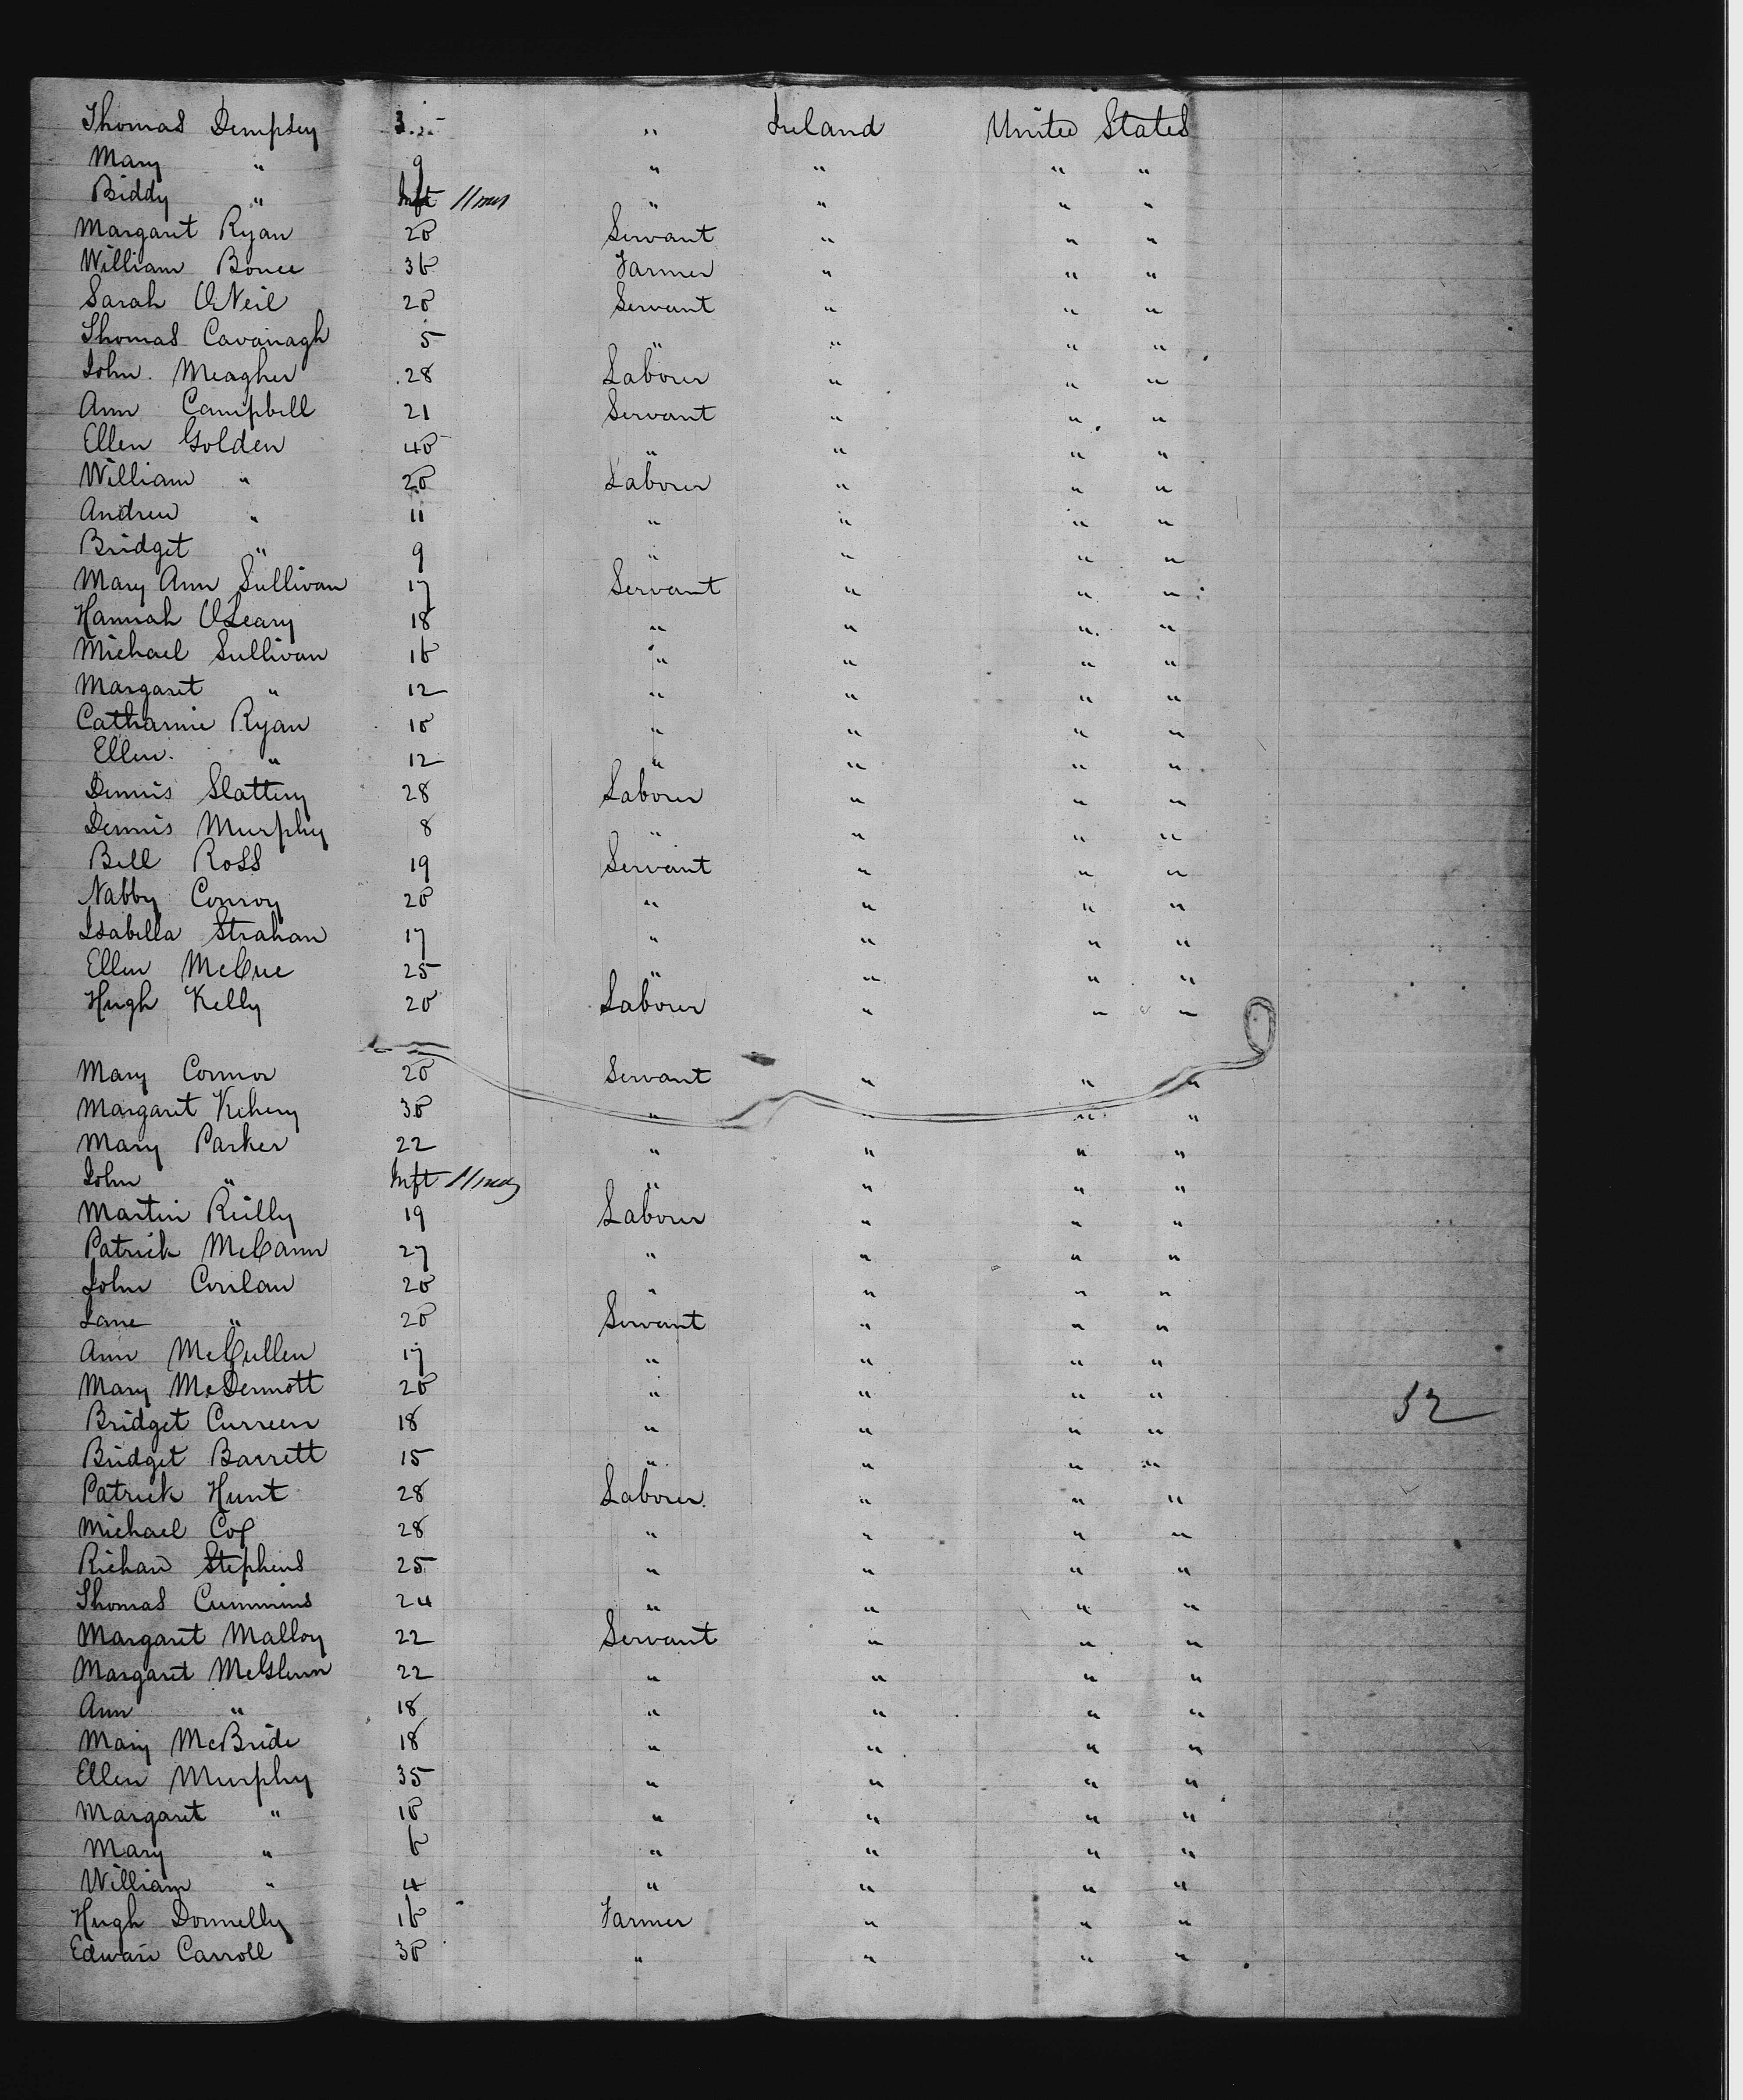 Thomas Dempsey 3 " Ireland United States
Mary " 9 " " " "
Biddy " Inft 11 mos " " " "
Margaret Ryan 20 Servant " " "
William Bouce 36 Farmer " " "
Sarah O'Neil 20 Servant " " "
Thomas Cavanagh 5 " " " "
John Meagher 28 Laborer " " "
Ann Campbell 21 Servant " " "
Ellen Golden 40 " " " "
William " 20 Laborer " " "
Andrew " 11 " " " "
Bridget " 9 " " " "
Mary Ann Sullivan 17 Servant " " "
Hannah O'Leary 18 " " " "
Michael Sullivan 16 " " " "
Margaret " 12 " " " "
Catharine Ryan 10 " " " "
Ellen " 12 " " " "
Dennis Slattery 28 Laborer " " "
Dennis Murphy 8 " " " "
Bell Ross 19 Servant " " "
Nabby Conroy 20 " " " "
Isabella Strahan 17 " " " "
Ellen McCue 25 " " " "
Hugh Kelly 20 Laborer " " "
Mary Connor 20 Servant " " "
Margaret Kehery 30 " " " "
Mary Parker 22 " " " "
John " Inft 11 mos " " " "
Martin Reilly 19 Laborer " " "
Patrick McCann 27 " " " "
John Conlan 20 " " " "
Jane " 20 Servant " " "
Ann McCullen 17 " " " "
Mary McDermott 20 " " " "
Bridget Curreen 18 " " " "
52
Bridget Barrett 15 " " " "
Patrick Hunt 28 Laborer " " "
Michael Cox 28 " " " "
Richard Stephens 25 " " " "
Thomas Cummins 24 " " " "
Margaret Malloy 22 Servant " " "
Margaret McGlenn 22 " " " "
Ann " 18 " " " "
Mary McBride 18 " " " "
Ellen Murphy 35 " " " "
Margaret " 10 " " " "
Mary " 6 " " " "
William " 4 " " " "
Hugh Donnelly 16 Farmer " " "
Edward Carroll 30 " " " "